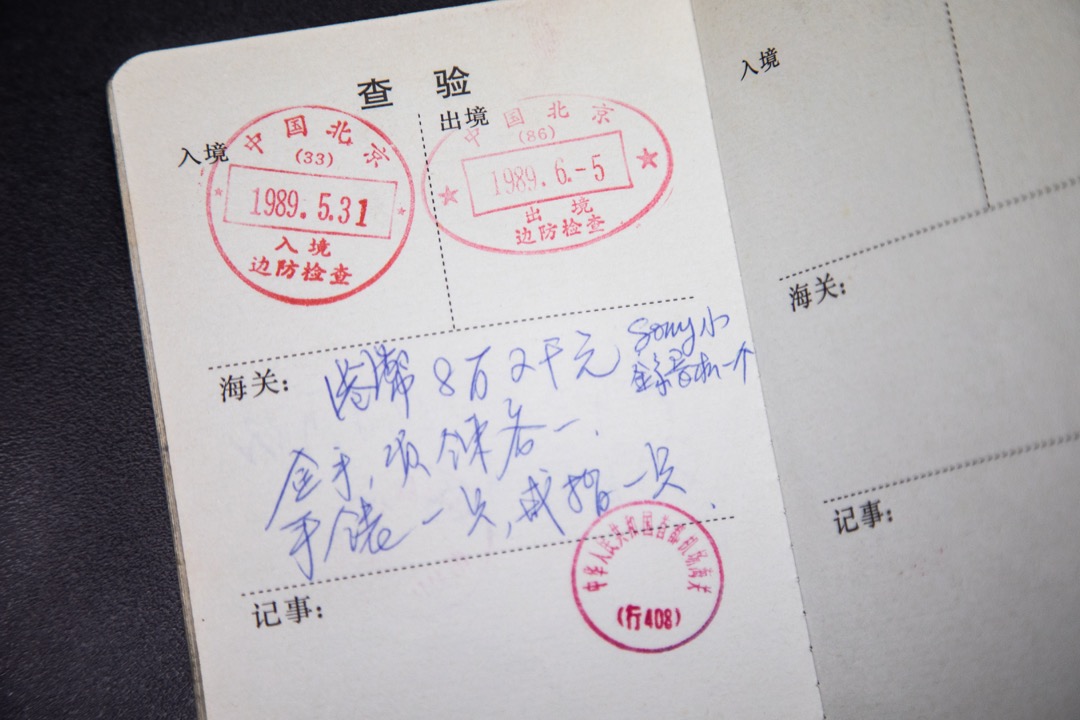 查 验
入境
中国北京
(33)
1989.5.31
入境
边防检查
出境
中国北京
(86)
1989.6.-5
出境
边防检查
海关:
港幣 8万2千元
Sony小
录音机一个
金手、项鍊各一.
手镯一只,戒指一只.
中华人民共和国首都机场海关
(行408)
记事:
入境
海关:
记事: